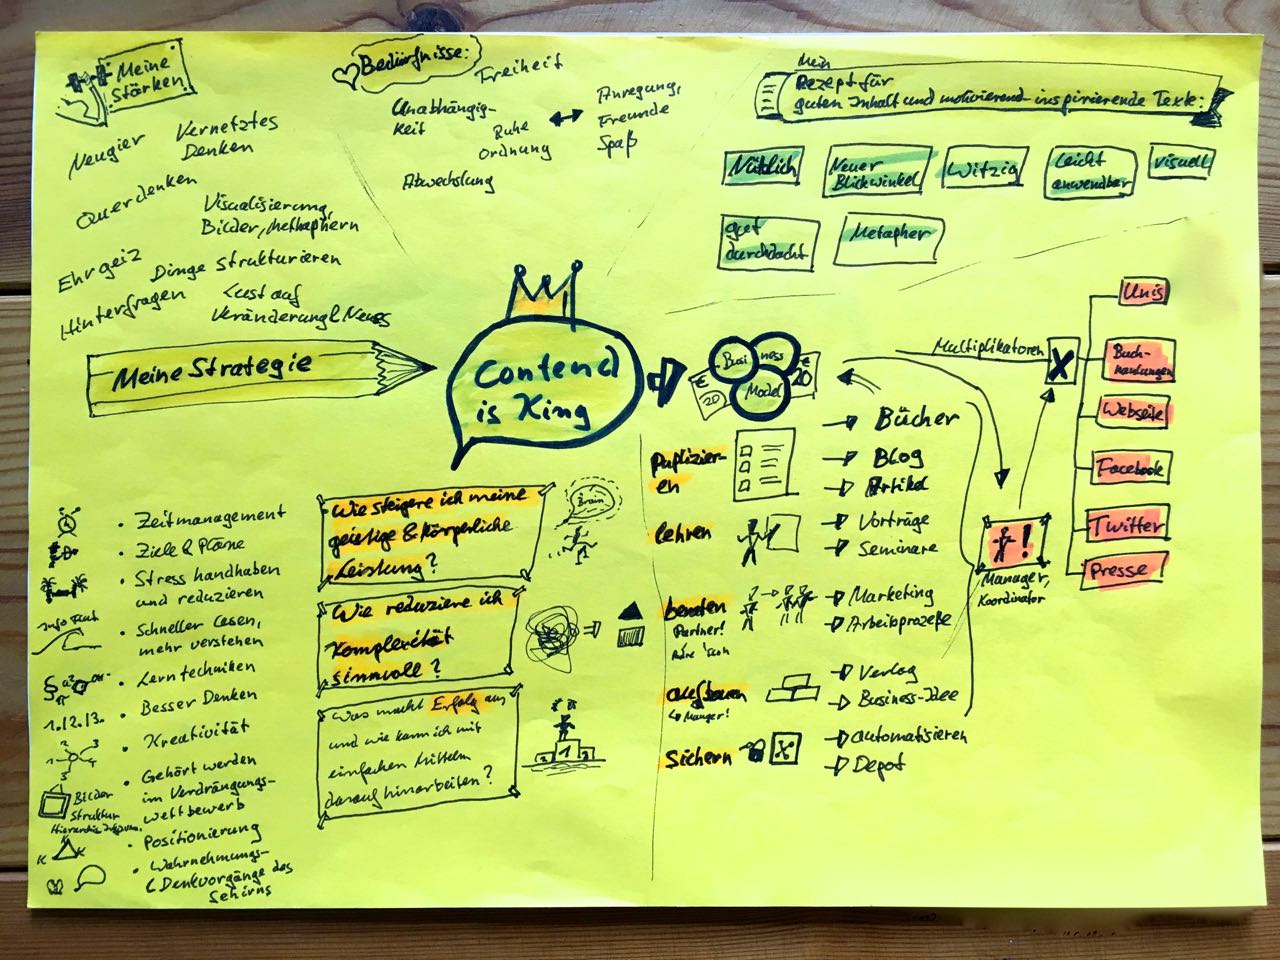 Meine
Stärken
Neugier
Vernetztes
Denken
Querdenken
Visualisierung,
Bilder, Methaphern
Ehrgeiz
Dinge strukturieren
Hinterfragen
Lust auf
Veränderung & Neues
Bedürfnisse:
Freiheit
Unabhängig-
keit
Ruhe
Ordnung
Anregung,
Freunde
Spaß
Abwechslung
Mein
Rezept für
guten Inhalt und motivierend-inspirierende Texte:
Nützlich
Neuer
Blickwinkel
Witzig
Leicht
anwendbar
visuell
gut
durchdacht
Metapher
Meine Strategie
Contend
is King
Busi
ness
Model
€
20
€
20
Multiplikatoren
X
Unis
Buch-
Webseite
Facebook
Twitter
Presse
!
Manager,
Koordinator
Puplizier-
en
Bücher
Blog
Artikel
lehren
Vorträge
Seminare
beraten
Partner!
Marketing
Arbeitsprozeße
aufbauen
Verlag
Business-Idee
Sichern
automatisieren
Depot
Wie steigere ich meine
geistige & Körperliche
Leistung?
Brain
Wie reduziere ich
Komplexität
sinnvoll?
Was macht Erfolg aus
und wie kann ich mit
einfachen Mitteln
darauf hinarbeiten?
1
• Zeitmanagement
• Ziele & Pläne
• Stress handhaben
und reduzieren
• Schneller Lesen,
mehr verstehen
• Lerntechniken
1.12.13.
• Besser Denken
• Kreativität
• Gehört werden
im Verdrängungs-
wettbewerb
Bilder
Struktur
• Positionierung
K
K
K
• Wahrnehmungs-
& Denkvorgänge des
Gehirns